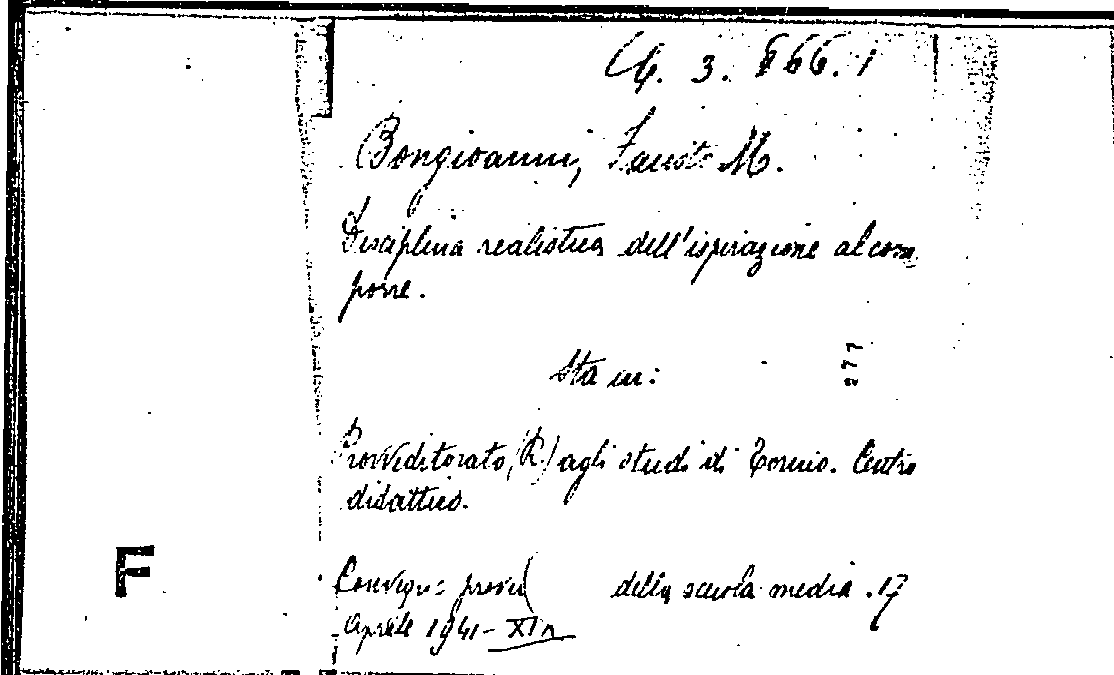 3. 866.1
Bongioanni, Fausto M.
Disciplina realistica dell'ispirazione al com-
porre.
277
Sta in:
Provveditorato (R.) agli studi di Torino. Centro
didattico.
F
della scuola media. 17
Aprile 1941-XIX